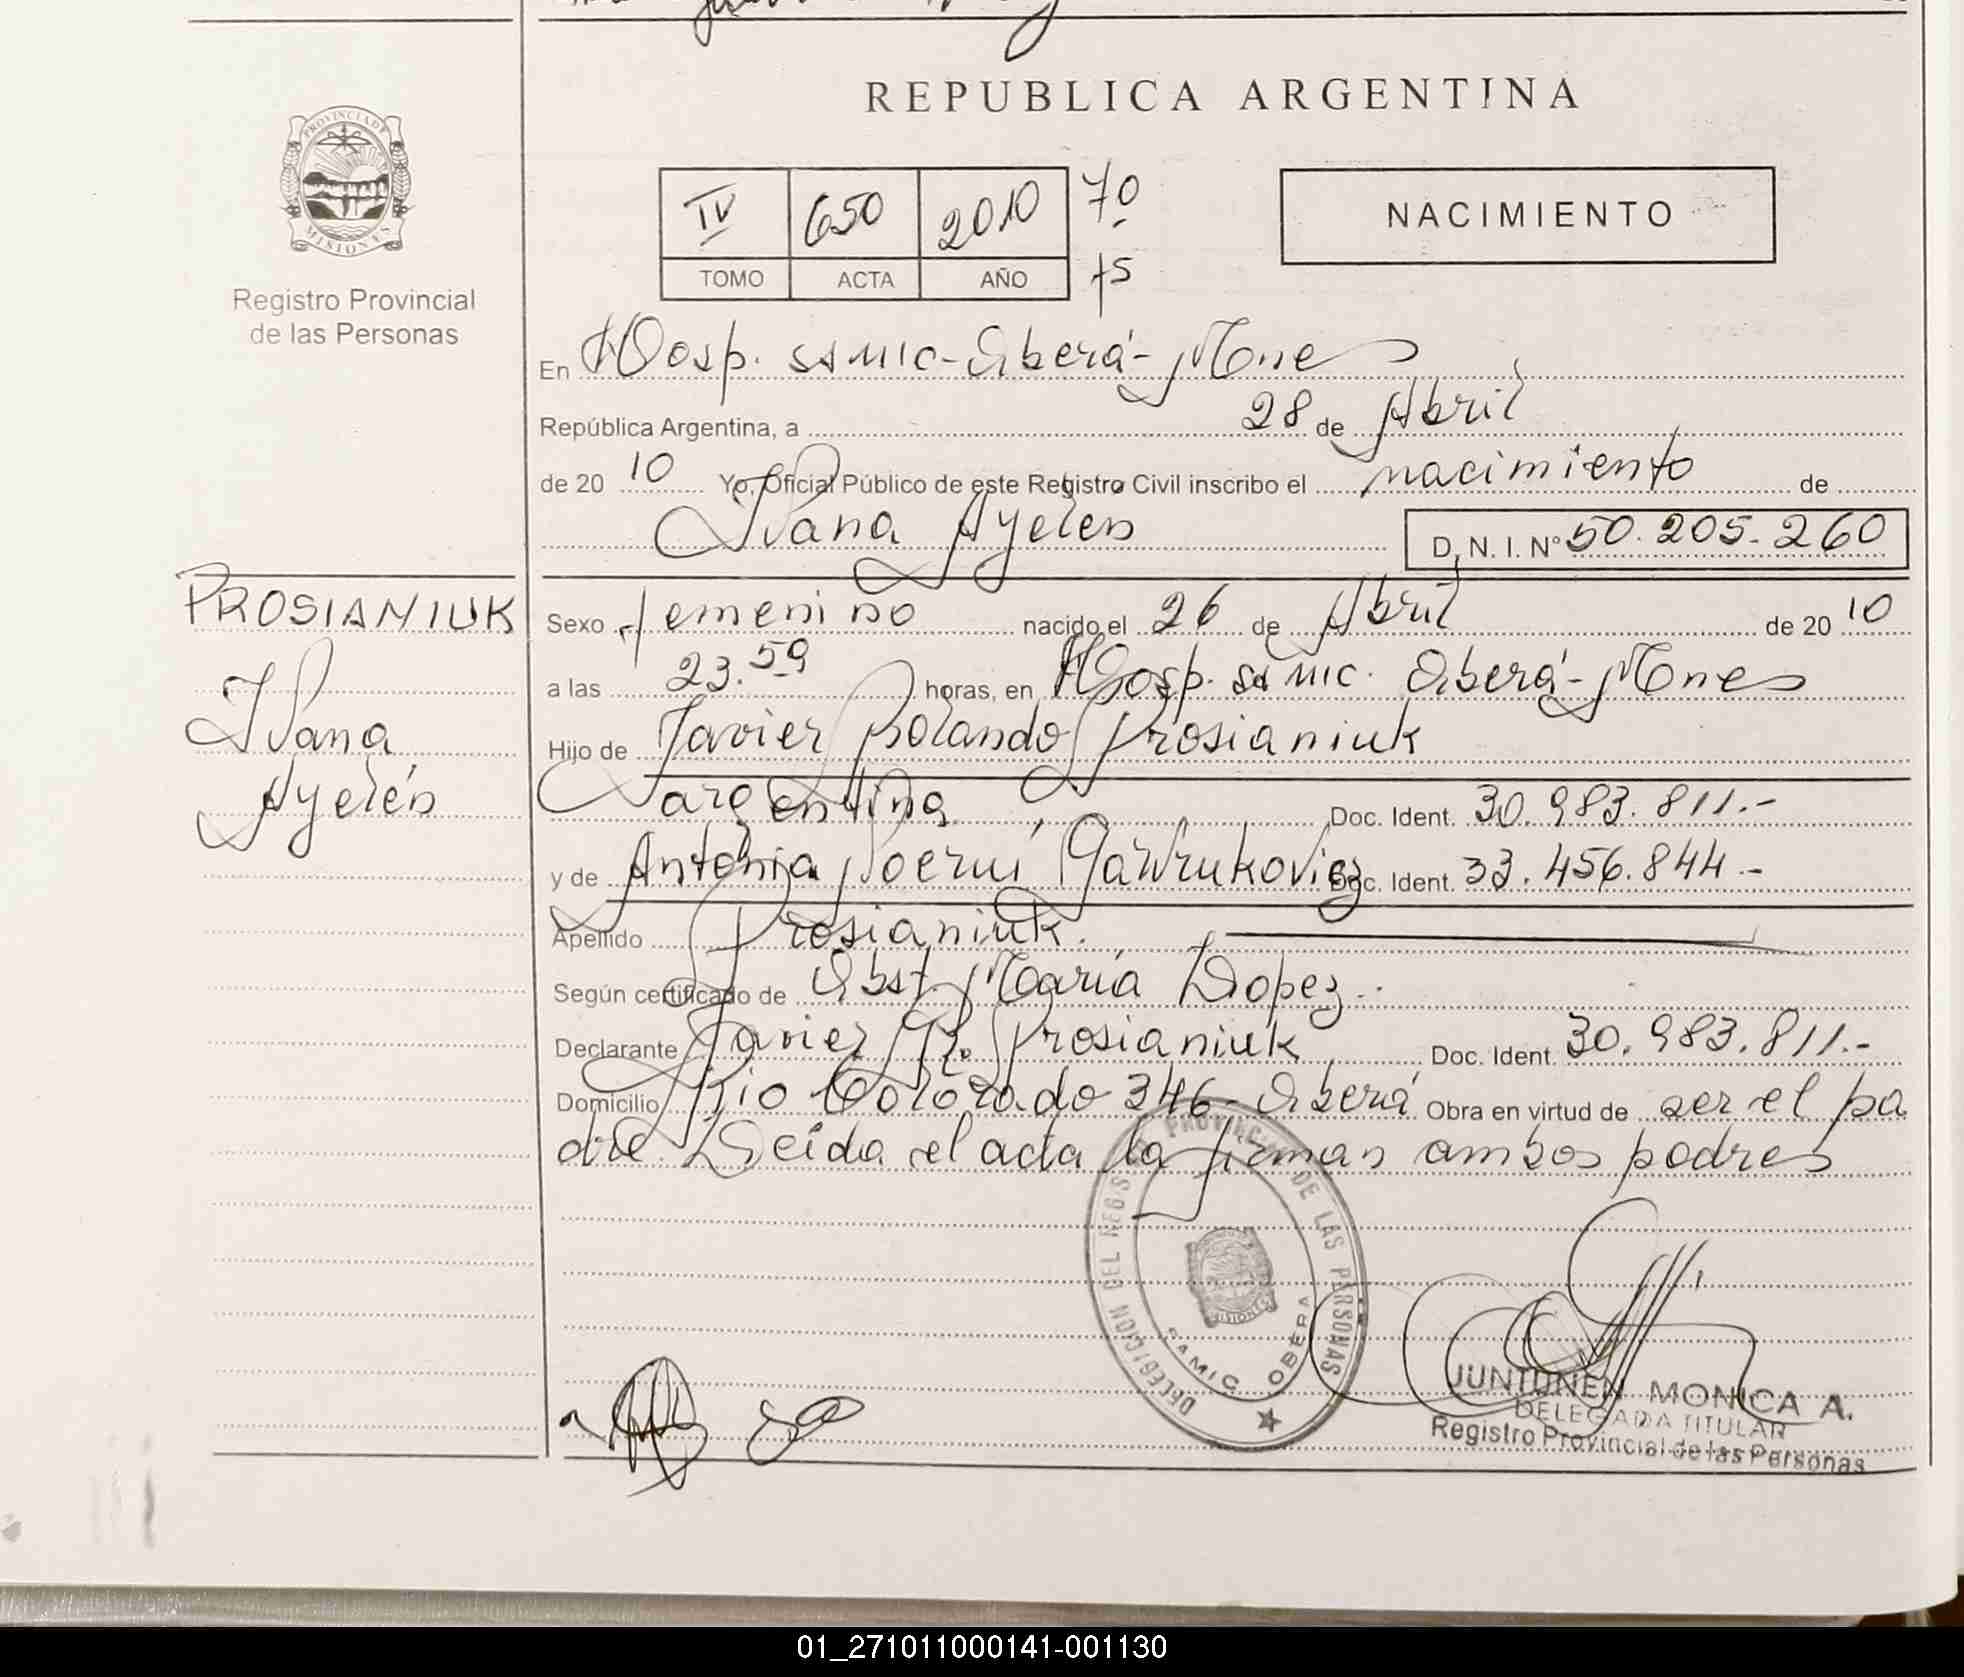 REPUBLICA ARGENTINA
PROVINCIA DE
MISIONES
Registro Provincial
de las Personas
IV 650 2010 70
TOMO ACTA AÑO 75
NACIMIENTO
En Hosp. SAMIC-Oberá-Mnes
República Argentina, a 28 de Abril
de 20 10 Yo, Oficial Público de este Registro Civil inscribo el nacimiento de
Ivana Ayelén D. N. I. N° 50.205.260
PROSIANIUK
Ivana
Ayelén
Sexo femenino nacido el 26 de Abril de 20 10
a las 23.59 horas, en Hosp. SAMIC. Oberá-Mnes
Hijo de Javier Rolando Prosianiuk
argentina Doc. Ident. 30.983.811.-
y de Antonia Noemí Gawrukovicz Doc. Ident. 33.456.844.-
Apellido Prosianiuk.
Según certificado de Obst María Lopez.
Declarante Javier R. Prosianiuk Doc. Ident. 30.983.811.-
Domicilio Rio Colorado 346-Oberá Obra en virtud de ser el pa
dre. Leida el acta la firman ambos padres
DELEGACION DEL REGISTRO PROVINCIAL DE LAS PERSONAS
MISIONES
SAMIC OBERA
JUNTUNEN MONICA A.
DELEGADA TITULAR
Registro Provincial de las Personas
01_271011000141-001130